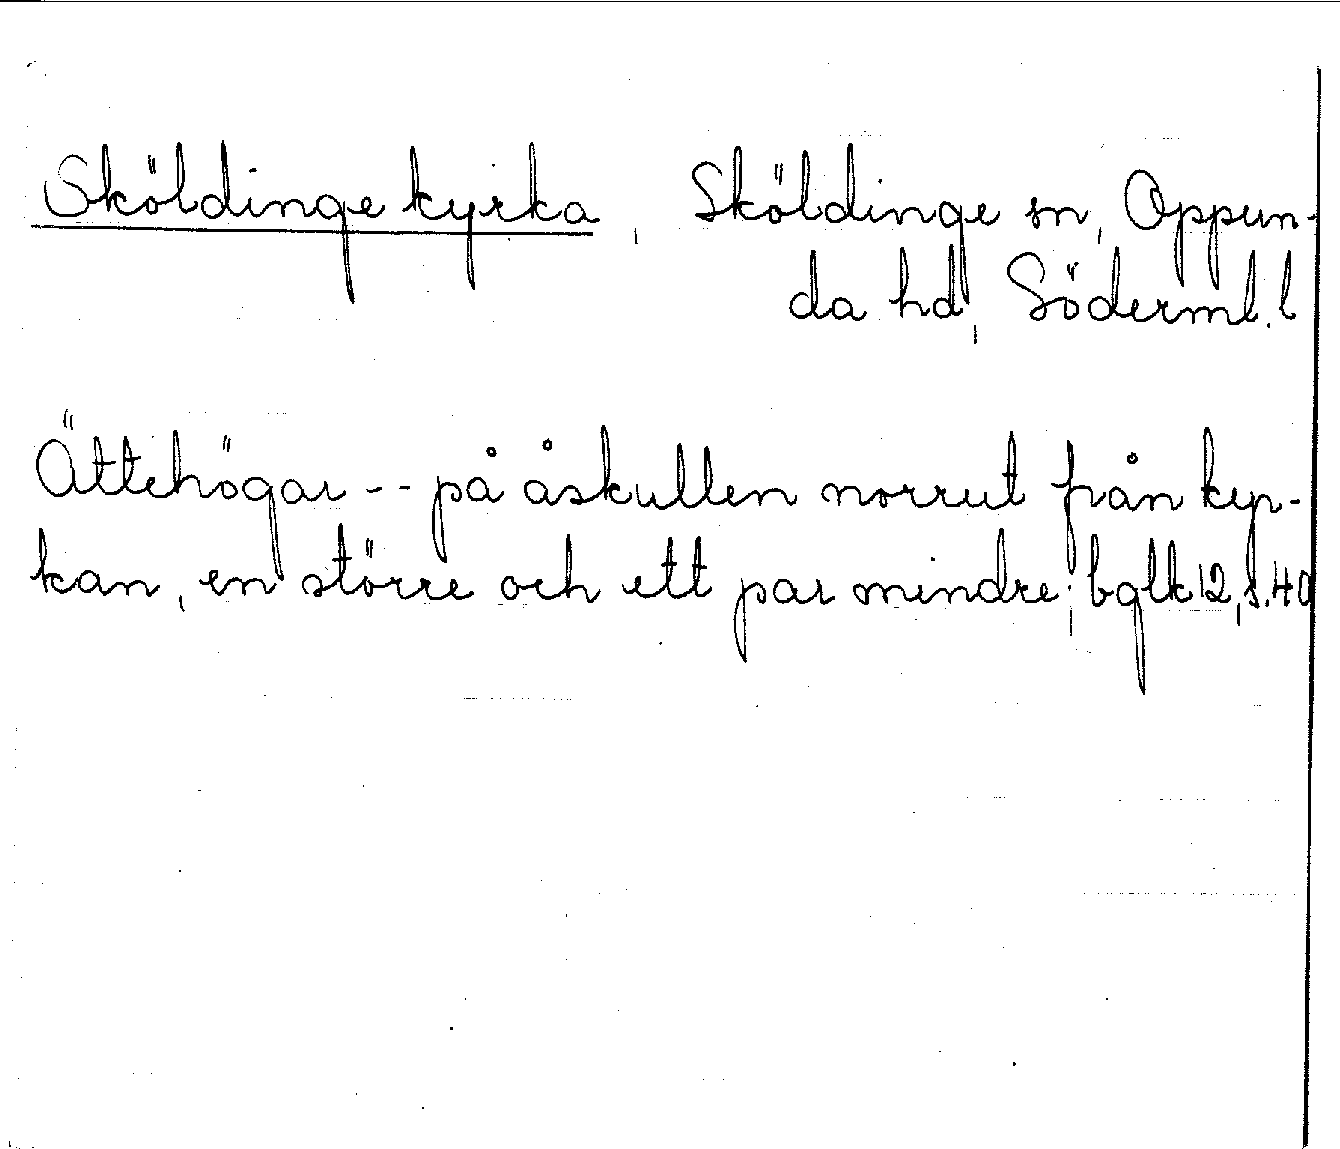 Sköldinge kyrka, Sköldinge sn, Oppun-
da hd, Söderml. l
Ättehögar -- på åskullen norrut från kyr-
kan, en större och ett par mindre; bglk 12, s. 40